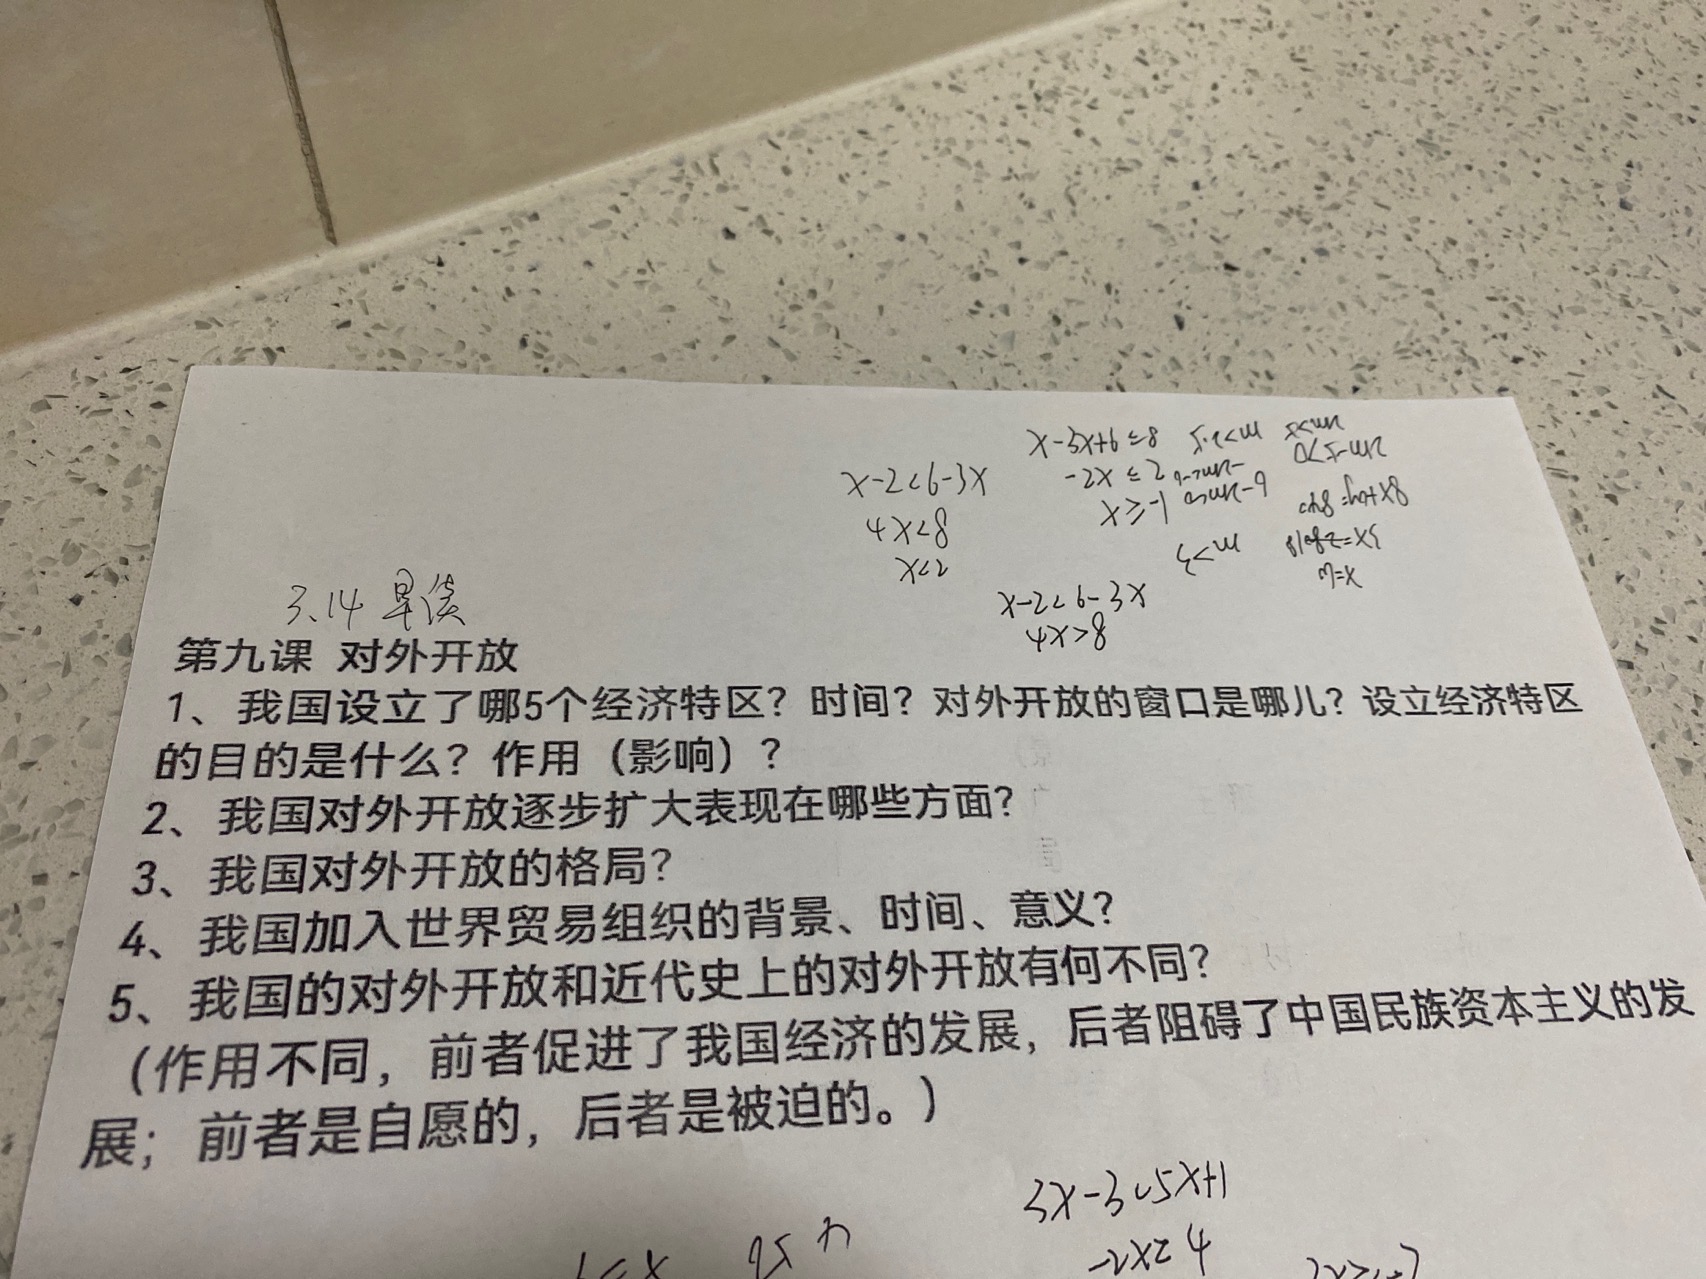 x-2<6-3x
4x<8
x<2
x-3x+6≤8
-2x≤2
x≥-1
m>2.5
2m>5
2m-5>0
6-2m<0
-2m<-6
m>3
x-2<6-3x
4x>8
3.14 早读
第九课 对外开放
1、我国设立了哪5个经济特区？时间？对外开放的窗口是哪儿？设立经济特区
的目的是什么？作用（影响）？
2、我国对外开放逐步扩大表现在哪些方面？
3、我国对外开放的格局？
4、我国加入世界贸易组织的背景、时间、意义？
5、我国的对外开放和近代史上的对外开放有何不同？
（作用不同，前者促进了我国经济的发展，后者阻碍了中国民族资本主义的发
展；前者是自愿的，后者是被迫的。）
3x-3<5x+1
-2x≤4